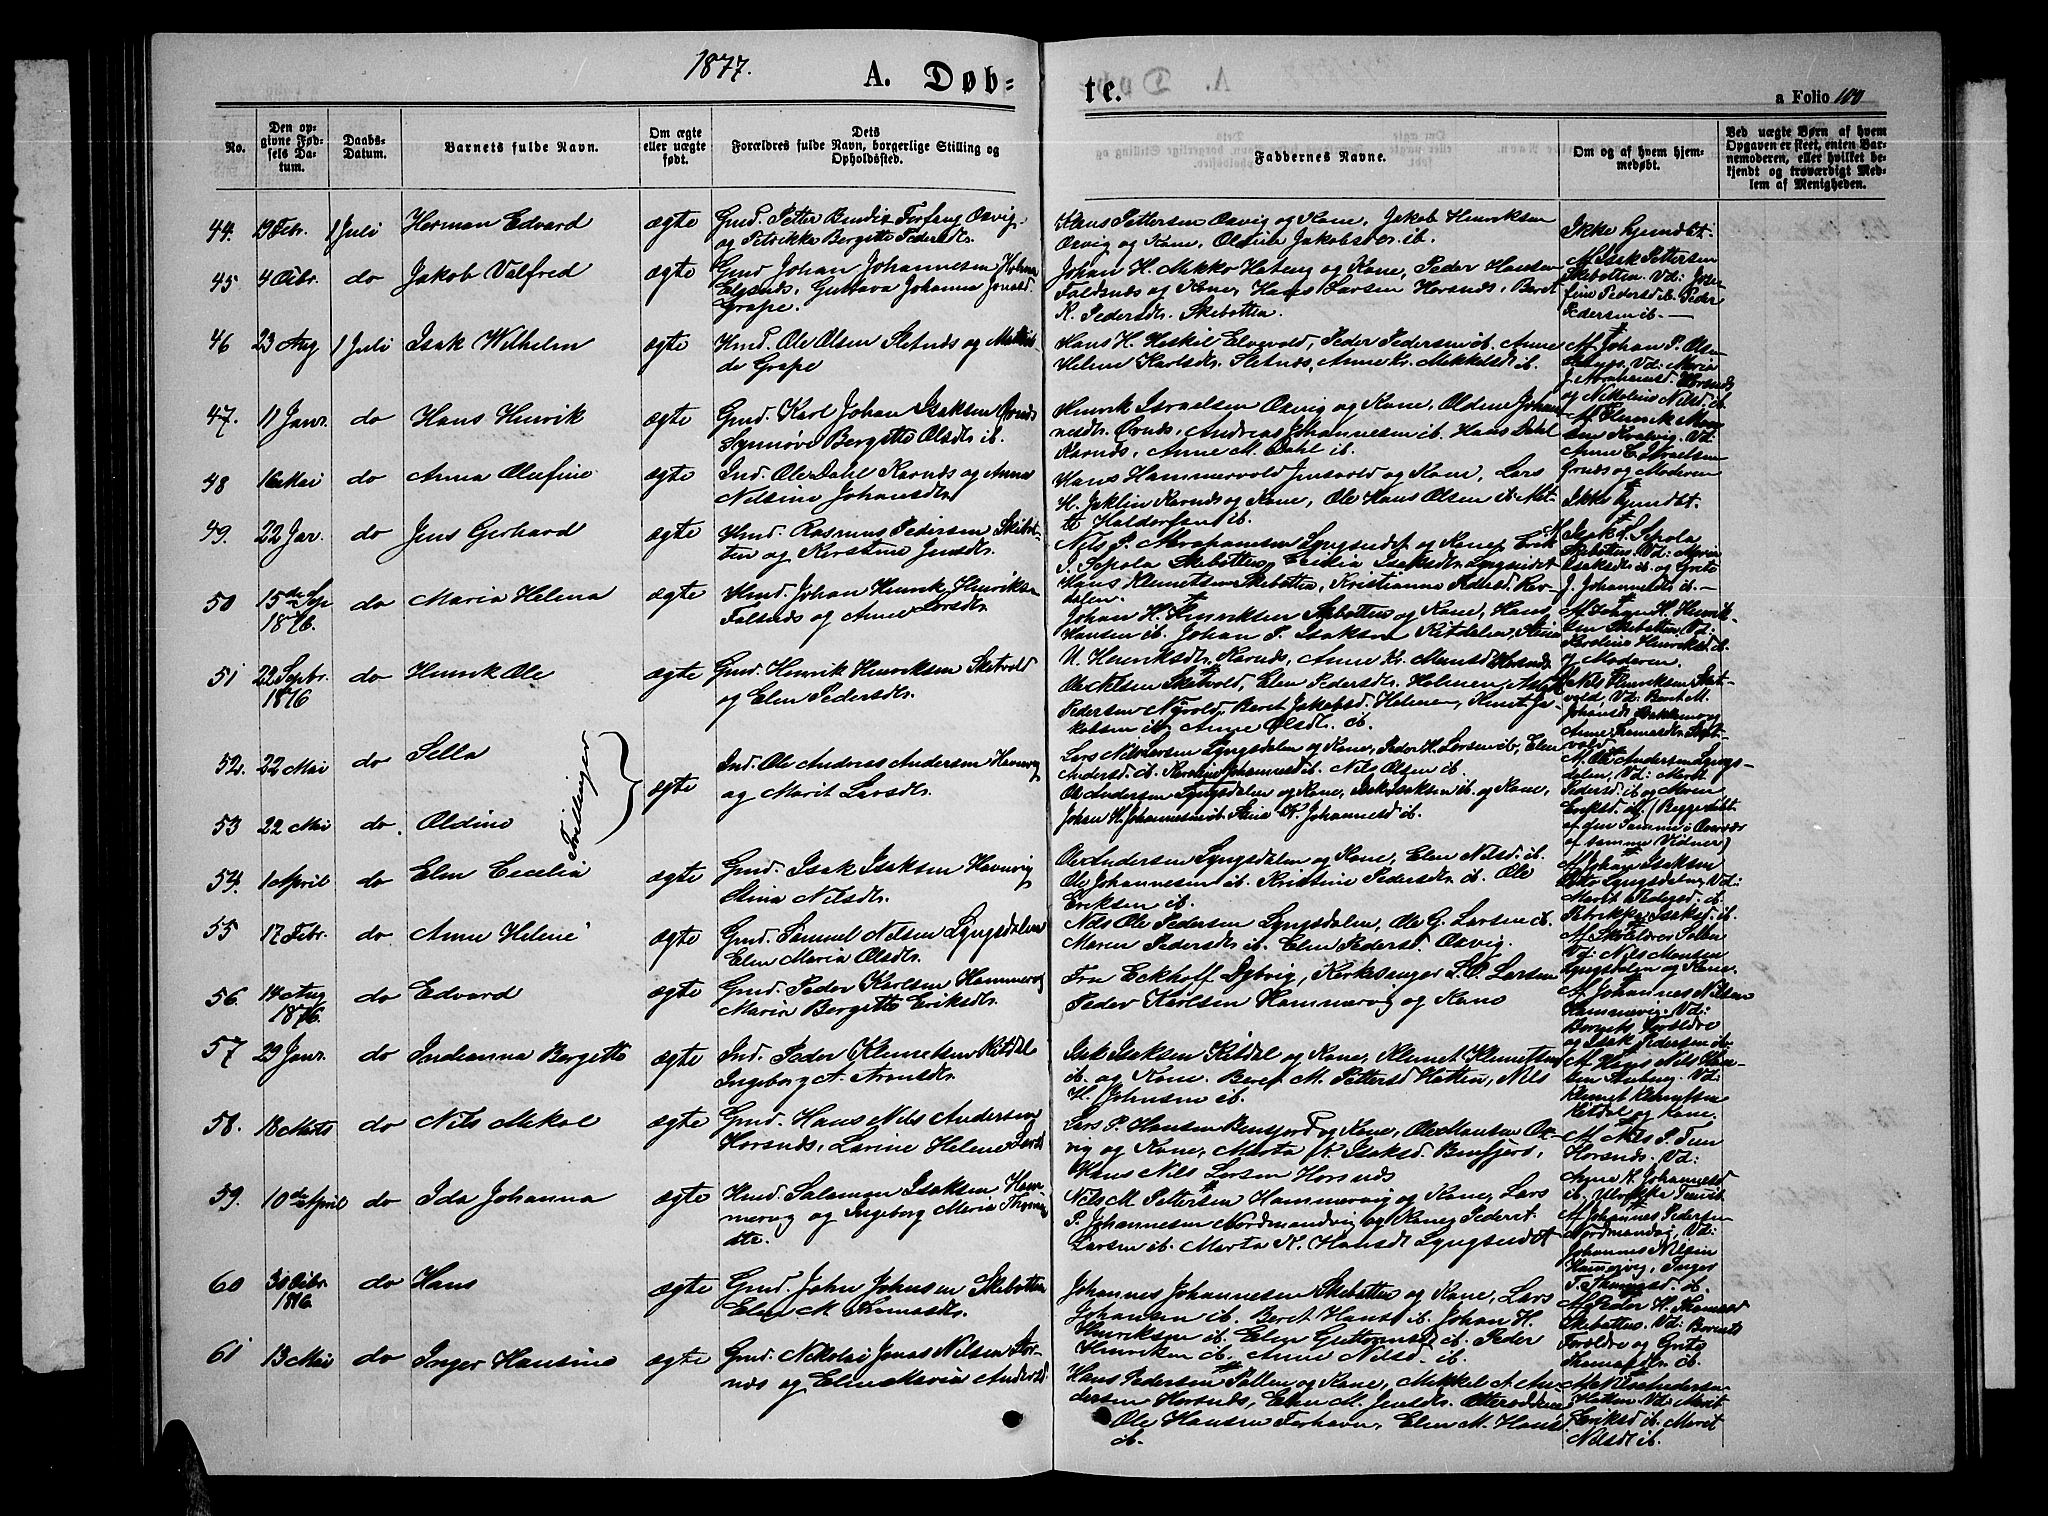 1877.
A. Døb=
te.
a Folio 100
No.
Den op=
givne Fød=
sels Da=
tum.
Daabs=
Datum.
Barnets fulde Navn.
Om ægte
eller uægte
født.
Dets
Forældres fulde Navn, borgerlige Stilling og
Opholdssted.
Faddernes Navne.
Om og af hvem hjem=
medøbt.
Ved uægte Børn af hvem
Opgaven er skeet, enten Bar=
nemoderen, eller hvilket be=
kjendt og troværdigt Med=
lem af Menigheden.
44. 19 Febr. 1 Juli Herman Edvard ægte Gmd. Petter Bendix Forfang Oxvig
og Petrikke Bergitte Pedersdtr.
Hans Pettersen Oxvig og Kone, Jakob Henriksen
Oxvig og Kone, Jakobsdtr. ib.
Ikke hjemdøbt.
45 4 Octbr. do Jakob Valfred ægte Gmd Johan Johannesen
Gustava Johanna
Grape.
Johan H. Mikko og Kone, Peder Hansen
Faldsnæs og Kone, Hans Larsen Horsnæs, Beret
K. Pedersdtr. Skibotten.
Af Isak Pettersen
Skibotten. Vd:
Pedersd ib. Peder
Pedersen ib. —
46 23 Aug 1 Juli Isak Wilhelm ægte Hmd. Ole Olsen Sletnæs og
de Grape
Hans H. Heskil Elvevold, Peder Pedersen ib. Anne
Helene Karlsdtr. Sletnæs, Anne Kr. Mekkelsd ib.
Af Johan P. Olsen
Vd: Maria
J. Abrahamsd. Horsnæs
og Nikoline Nilsd. ib.
47. 11 Janr. do Hans Henrik ægte Gmd. Karl Johan Isaksen Ørnæs
Synnøve Bergitte Olsdtr ib.
Henrik Israelsen Oxvig og Kone, Oldine Johan=
nesdtr. Ørnæs, Andreas Johannesen ib. Hans Dahl
Karnæs, Anne M. Dahl ib.
Af Henrik
Kvalvig. Vd:
Anne E. Israelsen
og Moderen
48 16 Mai do Anna Olufine ægte Ind. Ole Dahl Karnæs og Anna
Nilsine Johansdtr.
Hans Hammervold Jensvold og Kone, Lars
H. Jaklin Karnæs og Kone, Ole Hans Olsen ib. Met=
te Haldorsen ib.
Ikke hjemdøbt.
49. 22 Jar. do Jens Gerhard ægte Hmd. Rasmus Pedersen Skibot=
ten og Kirstine Jensdtr.
Nils P. Abrahamsen Lyngseidet og Kone, Erik
J. Sepola Skibotten, Isaksdtr. Lyngseidet
Hans Klemetsen Skibotten, Kristianna
dalen.
Isak I. Sepola
Skibotten. Vd: Maria
Isaksdtr ib. og Grete
J. Johannesdtr ib. —
50 15de Sep
1876. do Maria Helena ægte Hmd. Johan Henrik Henriksen
Falsnæs og Anne Larsdtr.
Johan H. Henriksen Skibotten og Kone, Hans
Hansen ib. Johan P. Isaksen Kitdalen,
N. Henriksdtr. Karnæs, Anne Kr. Monsd Horsnæs
Af Johan H. Henrik=
sen Skibotten. Vd:
Karoline Henriksd. ib.
og Moderen.
51 22 Septbr.
1876 do Henrik Ole ægte Gmd. Henrik Henriksen Sletvold
og Elen Pedersdtr.
Ole Nilsen Sletvold, Elen Pedersdtr. Holmen,
Pedersen Nyvold, Beret Jakobsd. Holmen, Knut Ja=
kobsen ib. og Anne Olsdtr. ib.
Nils Henriksen Slet=
vold, Vd: Berit M.
Johansdtr
Anne Tomasdtr. Slet=
vold
52. 22 Mai do Sella
Tvillinger
ægte Ind. Ole Andreas Andersen Havnvig
og Marit Larsdtr.
Lars Nils Larsen Lyngsdalen og Kone, Peder H. Larsen ib. Elen
Andersd. ib. Karoline Johannesd ib. Nils Olsen ib.
Af Ole Andersen Lyngs=
dalen, Vd: Marit
Pedersd ib. og Maren
Eriksd. ib. (Begge døbt
af den samme i Overvær
af samme Vidner)
53 22 Mai do. Oldine
Ole Andersen Lyngsdalen og Kone, Isak Isaksen ib. og Kone,
Johan H. Johannesen ib. Stina K. Johannesd ib.
54. 1 April do Elen Cecelia ægte Gmd. Isak Isaksen Havnvig
Stina Nilsdtr.
Ole Andersen Lyngsdalen og Kone, Elen Nilsd. ib.
Ole Johannesen ib. Kristine Pedersdtr. ib. Ole
Eriksen ib.
Af Johan Isaksen
Lyngsdalen, Vd:
Marit Pedersd. ib.
Petrikke Isaksd. ib.
55 17 Febr. do Anne Helene ægte Gmd. Samuel Nilsen Lyngsdalen
Elen Maria Olsdtr.
Nils Ole Pedersen Lyngsdalen, Ole G. Larsen ib.
Maren Pedersdtr ib. Elen Pedersd. Oxvig.
Af Skolelærer
Vd: Nils Monsen
Lyngsdalen og Kone.
56. 14 Aug
1876. do Edvard ægte Gmd. Peder Karlsen Hammervig
Maria Bergitte Eriksdtr.
Fru Eckhoff Dybvig, Kirkesanger S. O. Larsen
Peder Karlsen Hammervig og Kone
Af Johannes Nilsen
Hammervig. Vd:
Barnets Forældre
og Isak Pedersen ib.
57 29 Janr. do Indianna Bergitte ægte Ind. Peder Klemetsen Kitdal
Ingeborg A. Arnesdtr.
Isak Isaksen Kitdal og Kone, Klemet Klemetsen
ib. og Kone. Beret M. Pettersd Hatten, Nils
H. Johnsen ib.
Af Hans Nils Han=
sen Vd:
Klemet Klemetsen
Kitdal og Kone.
58. 18 Marts do Nils Mikal ægte Gmd. Hans Nils Andersen
Horsnæs, Larine Helene Larsd
Lars P. Hansen Rensfjord og Kone, Ole Hansen Ox=
vig og Kone, Marta K. Isaksd.
Hans Nils Larsen Horsnæs
Af Nils P.
Horsnæs. Vd:
Anne K. Johannesd
ib.
59. 10de April do Ida Johanna ægte Hmd. Salamon Isaksen Ham=
mervig og Ingeborg Maria Thomas
dtr.
Nils M. Pettersen Hammervig og Kone, Lars
P. Johannesen Nordmandvig og Kone, Peder
Larsen ib. Marta K. Hansdtr Lyngseidet
Af Johannes Pedersen
Nordmandvig, Vd:
Johannes Nilsen
Hamervig, Inger
T. Thomasd. ib.
60 30 Octbr.
1876. do Hans ægte Gmd. John Johnsen Skibotten
Elen M. Tomasdtr.
Johannes Johannesen Skibotten og Kone, Lars
Johansen ib. Beret Hansd ib. Johan H.
Henriksen ib. Elen Guttormsd ib. Peder
Henriksen ib. Anne Nilsd. ib.
Af Peder H.
Skibotten. Vd: Barnets
Forældre og Grete
Thomasdtr. ib.
61 13 Mai do Inger Hansine ægte Gmd. Nikolai Jonas Nilsen
næs og Elen Maria Andersd.
Hans Pedersen og Kone, Mikkel A. An=
dersen Horsnæs, Elen M. Jensdtr.
Ole Hansen Elen M. Hansd
ib.
Af Nils Andersen
Hatten. Vd: Marit
Eriksd ib. Marit
Nilsdtr ib.